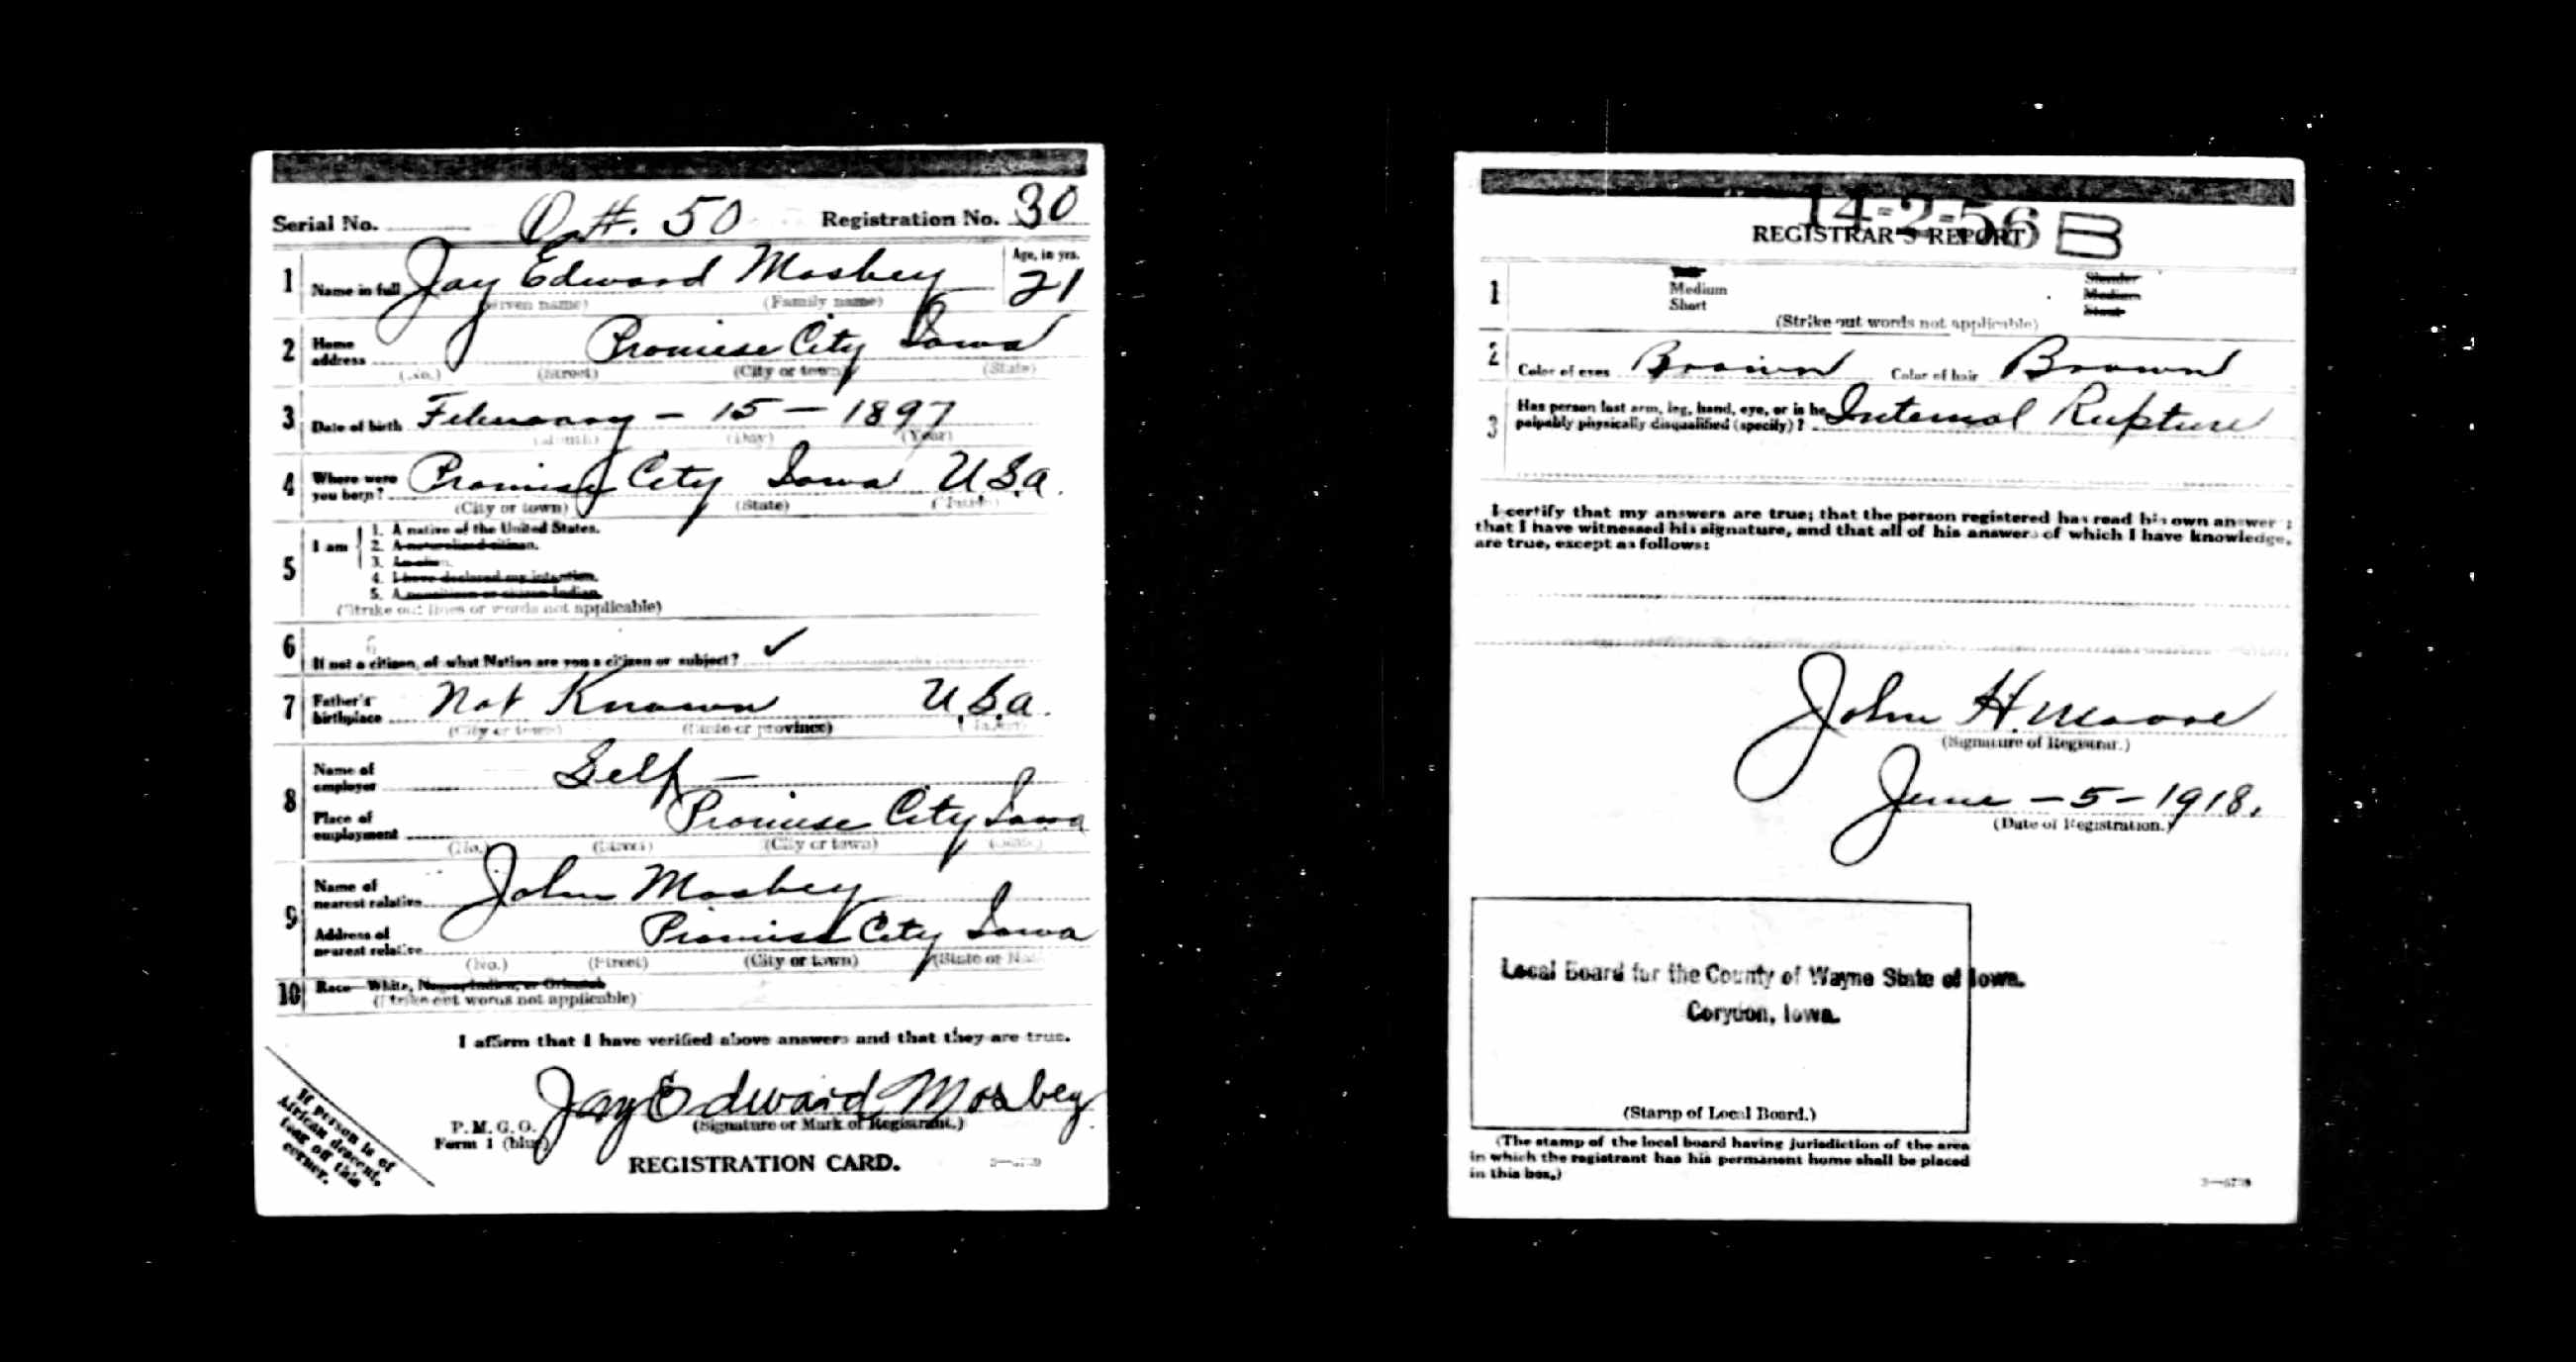 Serial No. 50 Registration No. 30
1 Name in full Jay Edward Mosbey Age, in yrs. 21
(Given name) (Family name)
2 Home address Promise City Iowa
(No.) (Street) (City or town) (State)
3 Date of birth February - 15 - 1897
(Month) (Day) (Year)
4 Where were you born? Promise City Iowa U.S.a.
(City or town) (State) (Nation)
5 I am
1. A native of the United States.
2. A naturalized citizen.
3. An alien.
4. I have declared my intention.
5. A noncitizen or citizen Indian.
(Strike out lines or words not applicable)
6 If not a citizen, of what Nation are you a citizen or subject? ✓
7 Father's birthplace Not Known U.S.a.
(City or town) (State or province) (Nation)
8 Name of employer Self -
Place of employment Promise City Iowa
(No.) (Street) (City or town) (State)
9 Name of nearest relative John Mosbey
Address of nearest relative Promise City Iowa
(No.) (Street) (City or town) (State or Nation)
10 Race—White, Negro, Indian, or Oriental
(Strike out words not applicable)
I affirm that I have verified above answers and that they are true.
Jay Edward Mosbey
P. M. G. O.
Form 1 (blue) (Signature or Mark of Registrant.)
REGISTRATION CARD.
If person is of
African descent,
tear off this
corner.
14-2-56 B
REGISTRAR'S REPORT
1 Tall Slender
Medium Medium
Short Stout
(Strike out words not applicable)
2 Color of eyes Brown Color of hair Brown
3 Has person lost arm, leg, hand, eye, or is he
palpably physically disqualified (specify)? Internal Rupture
I certify that my answers are true; that the person registered has read his own answers;
that I have witnessed his signature, and that all of his answers of which I have knowledge,
are true, except as follows:
John H. Moore
(Signature of Registrar.)
June - 5 - 1918.
(Date of Registration.)
Local Board for the County of Wayne State of Iowa.
Corydon, Iowa.
(Stamp of Local Board.)
(The stamp of the local board having jurisdiction of the area
in which the registrant has his permanent home shall be placed
in this box.)